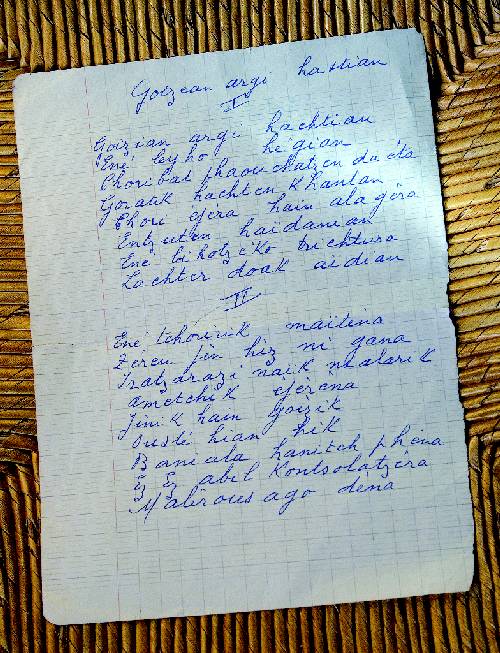 Goizean argi hastian
I
Goizian argi hachtian
Ene leyho hegian
Choribat phaouchatzen da eta
Goratik hachten khantan
Chori ejera hain alagera
Entzuten haidanian
Ene bihotzeko trichtura
Lachter doak aidian
II
Ene tchoririk maitena
Zeren jin hiz ni gana
Iratzarazi naik nialarik
ametchik ejerena
Jinik hain goizik
ouste hian hik
Baniala hanitch phena
Ez Ez abil kontsolatzera
Malerous ago dena